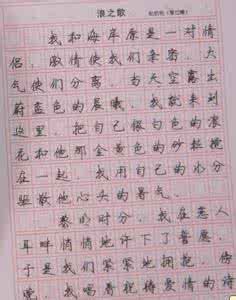 浪之歌
我和海岸原是一对情
侣，激情使我们亲密，大
气使们分离。当天空露出
蔚蓝色的晨曦，我就来到
这里，把自己银白色的浪
花和他那金黄色的砂粒搅
在一起，我用自己的水分
驱散他心头的暑气。
黎明时分，我在恋人
耳畔悄悄地许下了誓愿，
于是我们紧紧地拥抱。傍
晚，我唱着祝祷爱情的诗